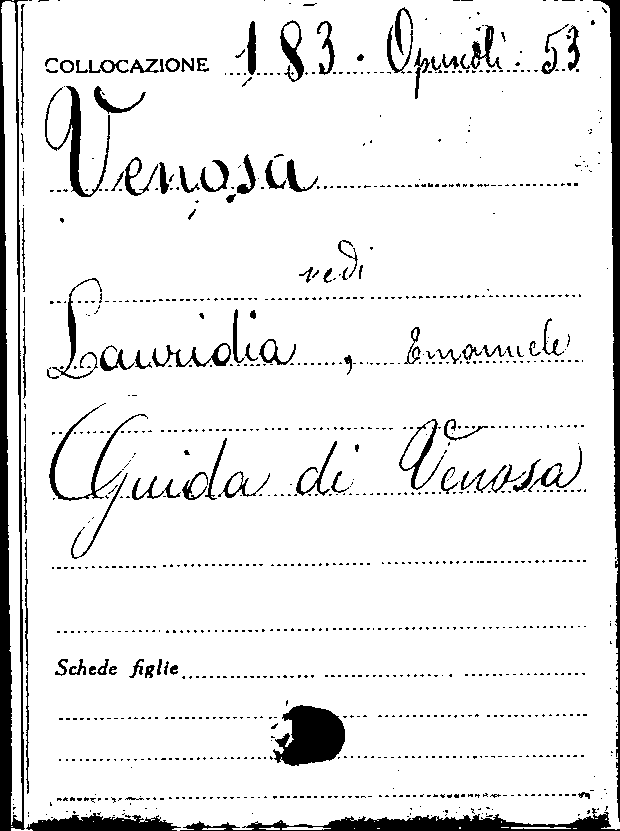 COLLOCAZIONE 183. Opuscoli. 53
Venosa
vedi
Lauridia, Emanuele
Guida di Venosa
Schede figlie